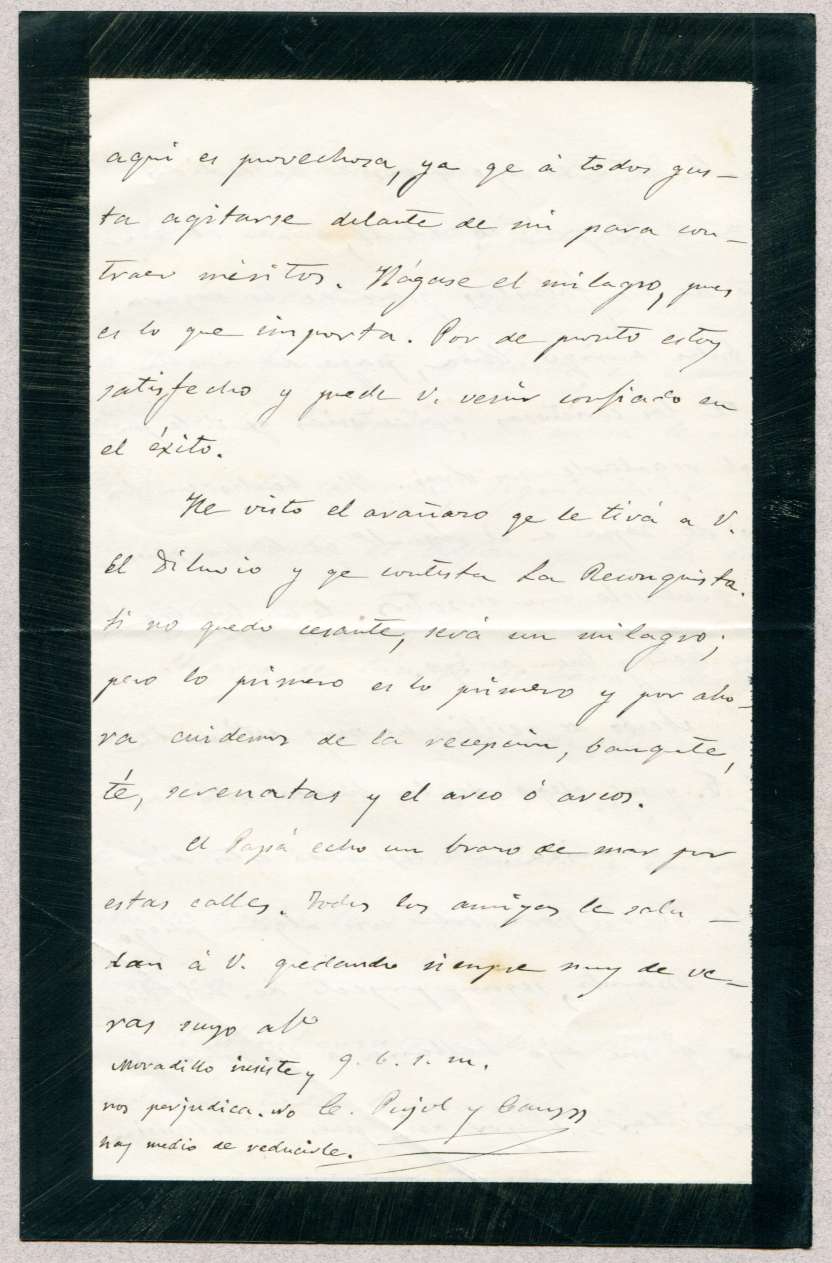 aquí es provechosa, ya qe á todos gus-
ta agitarse delante de mi para con-
traer méritos. Hágase el milagro, pues
es lo que importa. Por de pronto estoy
satisfecho y puede V. venir confiado en
el éxito.
He visto el arañazo qe le tirá a V.
El Diluvio y qe contesta La Reconquista.
Si no quedo cesante, será un milagro;
pero lo primero es lo primero y por aho-
ra cuidemos de la recepción, banquete,
té, serenatas y el arco ó arcos.
El Papá echo un brazo de mar por
estas calles. Todos los amigos le salu-
dan á V. quedando siempre muy de ve-
ras suyo afo
q. b. s. m.
C. Pujol y Camps
Moradillo insiste y
nos perjudica. No
hay medio de reducirle.